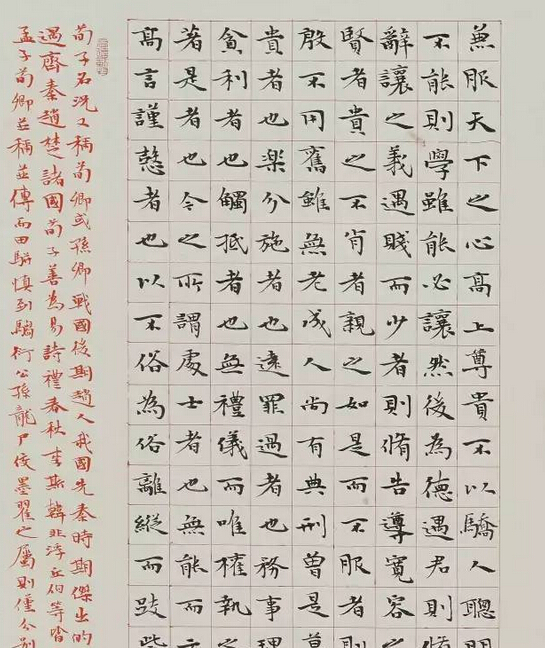 兼服天下之心高上尊貴不以驕人聰明
不能則學雖能必讓然後為德遇君則脩
辭讓之義遇賤而少者則脩告導寬容
賢者貴之不肖者親之如是而不服者則
殷不用舊雖無老成人尚有典刑曾是莫
貴者也樂分施者也遠罪過者也務事理
貪利者也觸抵者也無禮儀而唯權執之
著是者也今之所謂處士者也無能而云
高言謹愨者也以不俗為俗離縱而跂
荀子名況又稱荀卿或孫卿戰國後期趙人我國先秦時期傑出的
遇齊秦趙楚諸國荀子善為易詩禮春秋李斯韓非浮丘伯等皆
孟子荀卿並稱並傳而田駢慎到騶衍公孫龍尸佼墨翟之屬則僅分別